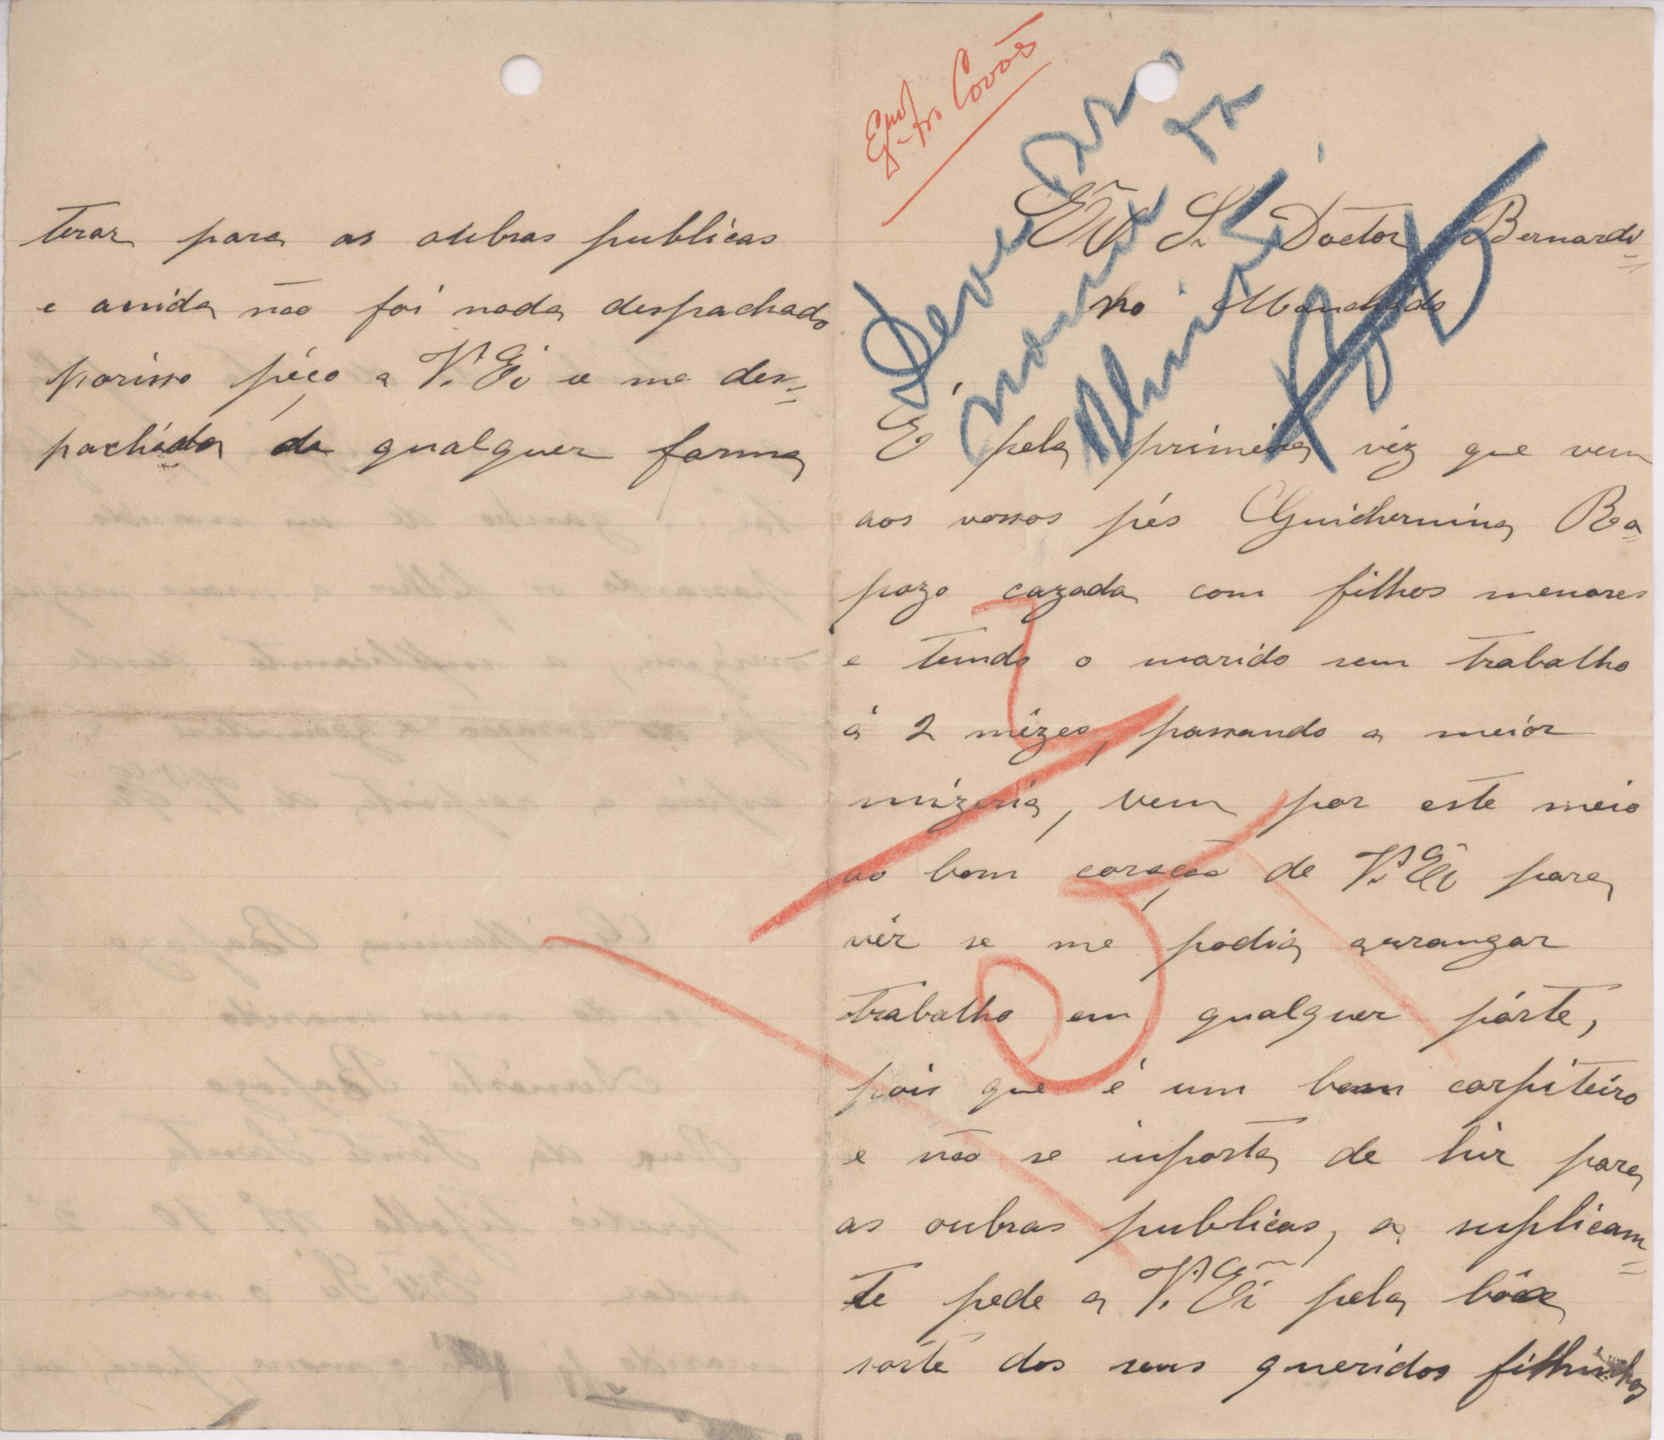 terar para as oubras publicas
e ainda não foi nada despachado
porisso péço a V. Ex.ª u me des=
pachâda de qualquer forma
Covões
Ex.mo Sr. Doctor Bernardi=
no Manchado
É pela primeira vêz que vem
aos vossos pés Guilhermina Ra=
pozo cazada com filhos menores
e tendo o marido sem trabalho
á 2 mêzes, passando a meiór
mizeria, vem por este meio
ao bom coração de V. Ex.ª para
vêr se me podia arranzar
trabalho em qualquer párte,
pois que é um bom carpiteiro
e não se inporta de hir para
as oubras publicas, a suplicam=
te pede a V. Ex.ª pela bôa
sorte dos seus queridos filhinhos